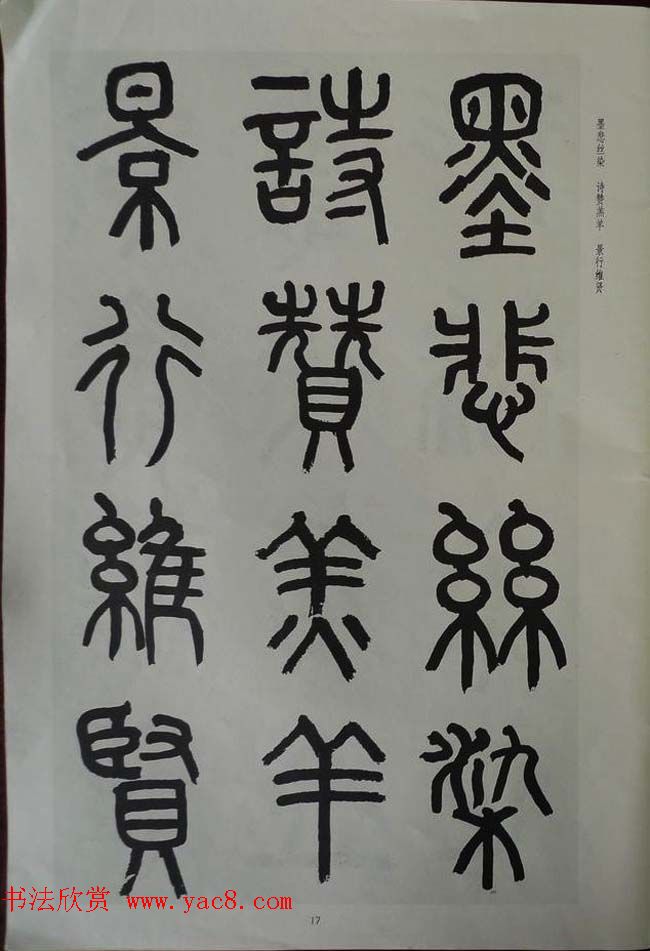 墨悲絲染
詩贊羔羊
景行維賢
墨悲丝染 诗赞羔羊 景行维贤
书法欣赏 www.yac8.com
17